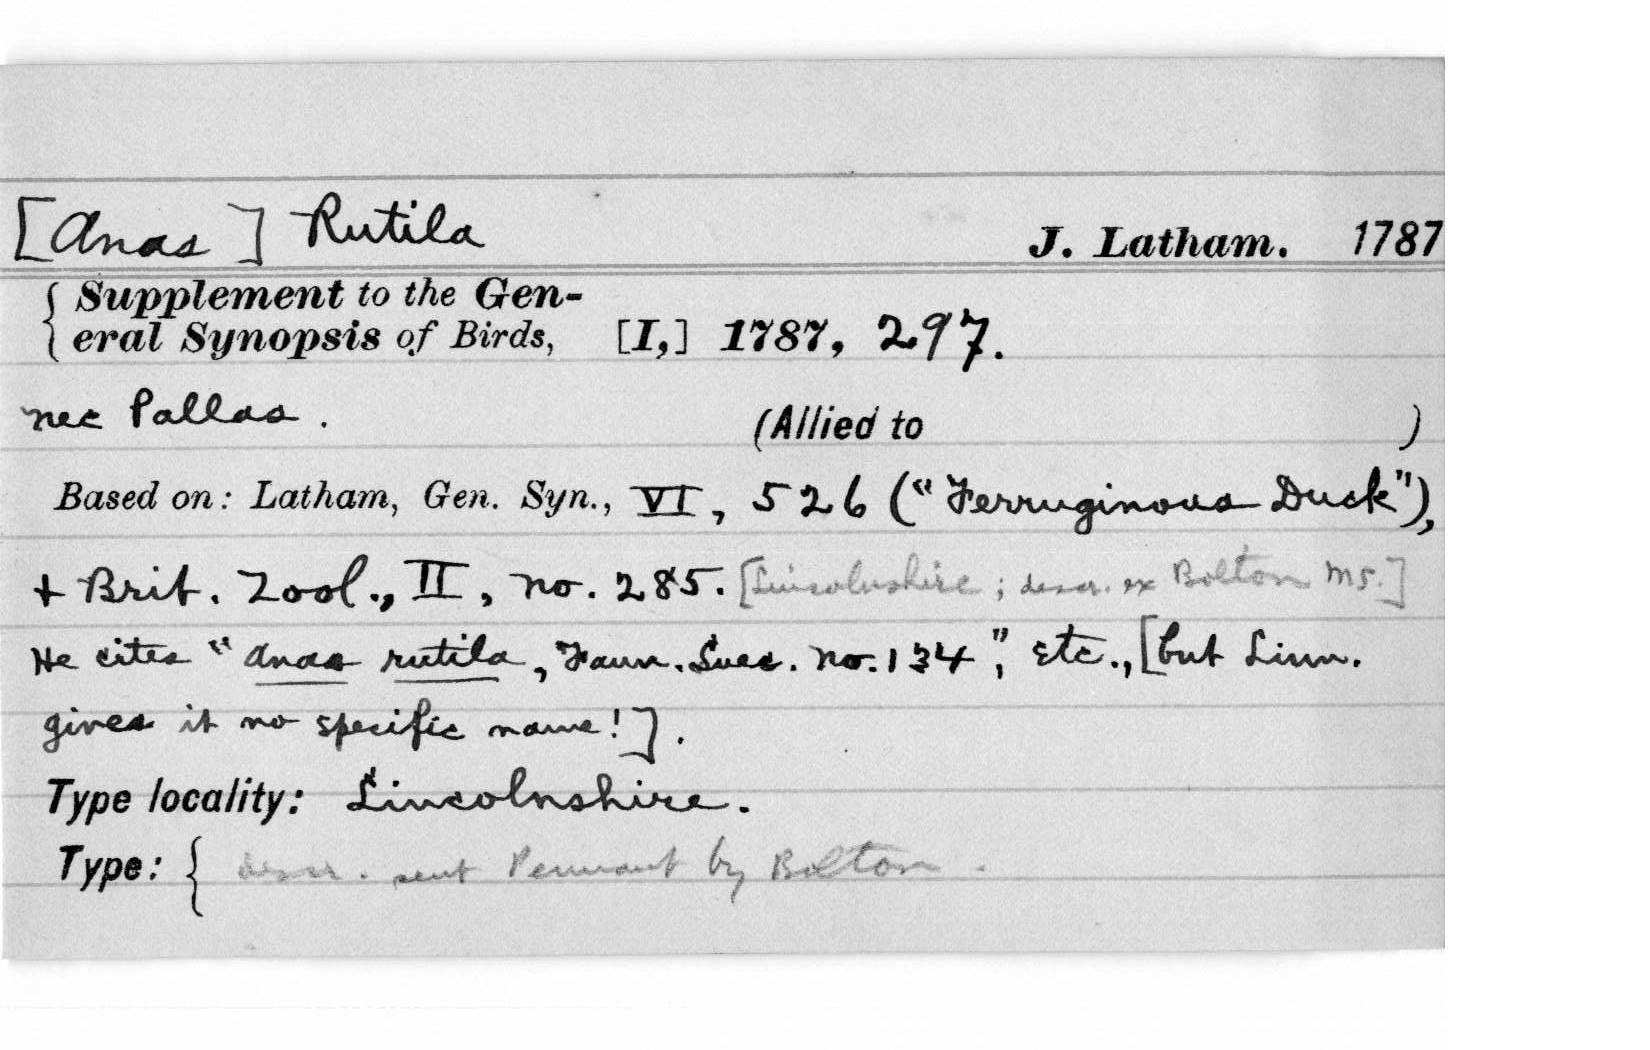 [Anas] Rutila J. Latham. 1787
{ Supplement to the Gen-
eral Synopsis of Birds, [I,] 1787, 297.
nec Pallas. (Allied to )
Based on: Latham, Gen. Syn., VI, 526 ("Ferruginous Duck"),
+ Brit. Zool., II, no. 285. [Lincolnshire; descr. ex Bolton MS.]
He cites "Anas rutila, Faun. Suec. no. 134", etc., [but Linn.
gives it no specific name!].
Type locality: Lincolnshire.
Type: { descr. sent Pennant by Bolton.